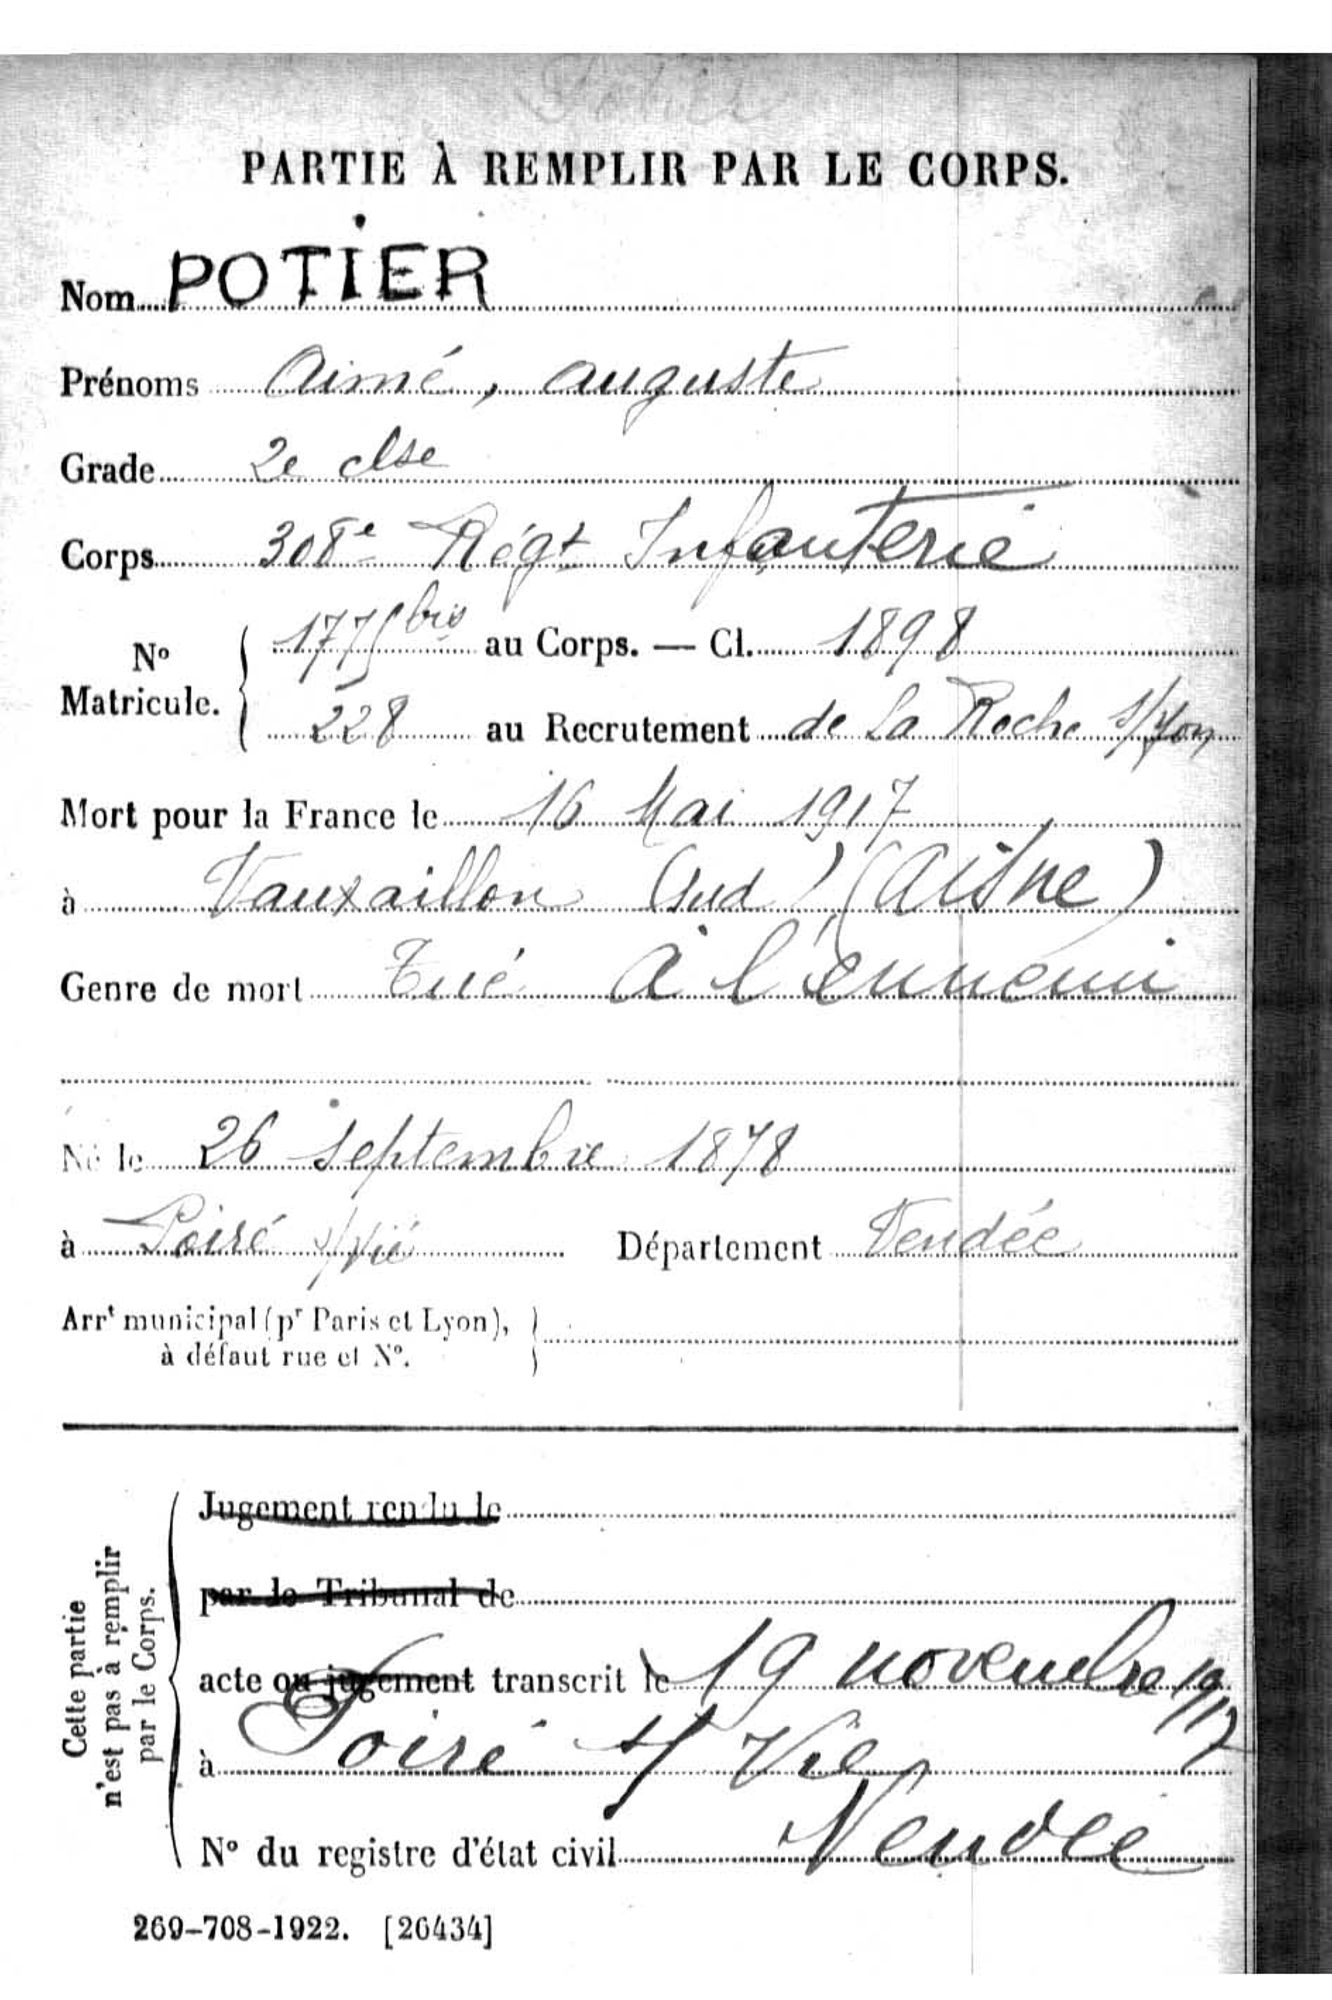 Potier
PARTIE À REMPLIR PAR LE CORPS.
Nom POTIER
Prénoms Aimé, auguste
Grade 2e clse
Corps 308e Régt Infanterie
No Matricule. 1775 bis au Corps. — Cl. 1898
228 au Recrutement de La Roche s/Yon
Mort pour la France le 16 Mai 1917
à Vauxaillon (Sud) (Aisne)
Genre de mort Tué à l'ennemi
Né le 26 septembre 1878
à Poiré s/Vie Département Vendée
Arrt municipal (pr Paris et Lyon),
à défaut rue et No.
Cette partie
n'est pas à remplir
par le Corps.
Jugement rendu le
par le Tribunal de
acte ou jugement transcrit le 19 novembre 1917
à Poiré s/ Vie
No du registre d'état civil Vendée
269-708-1922. [26434]